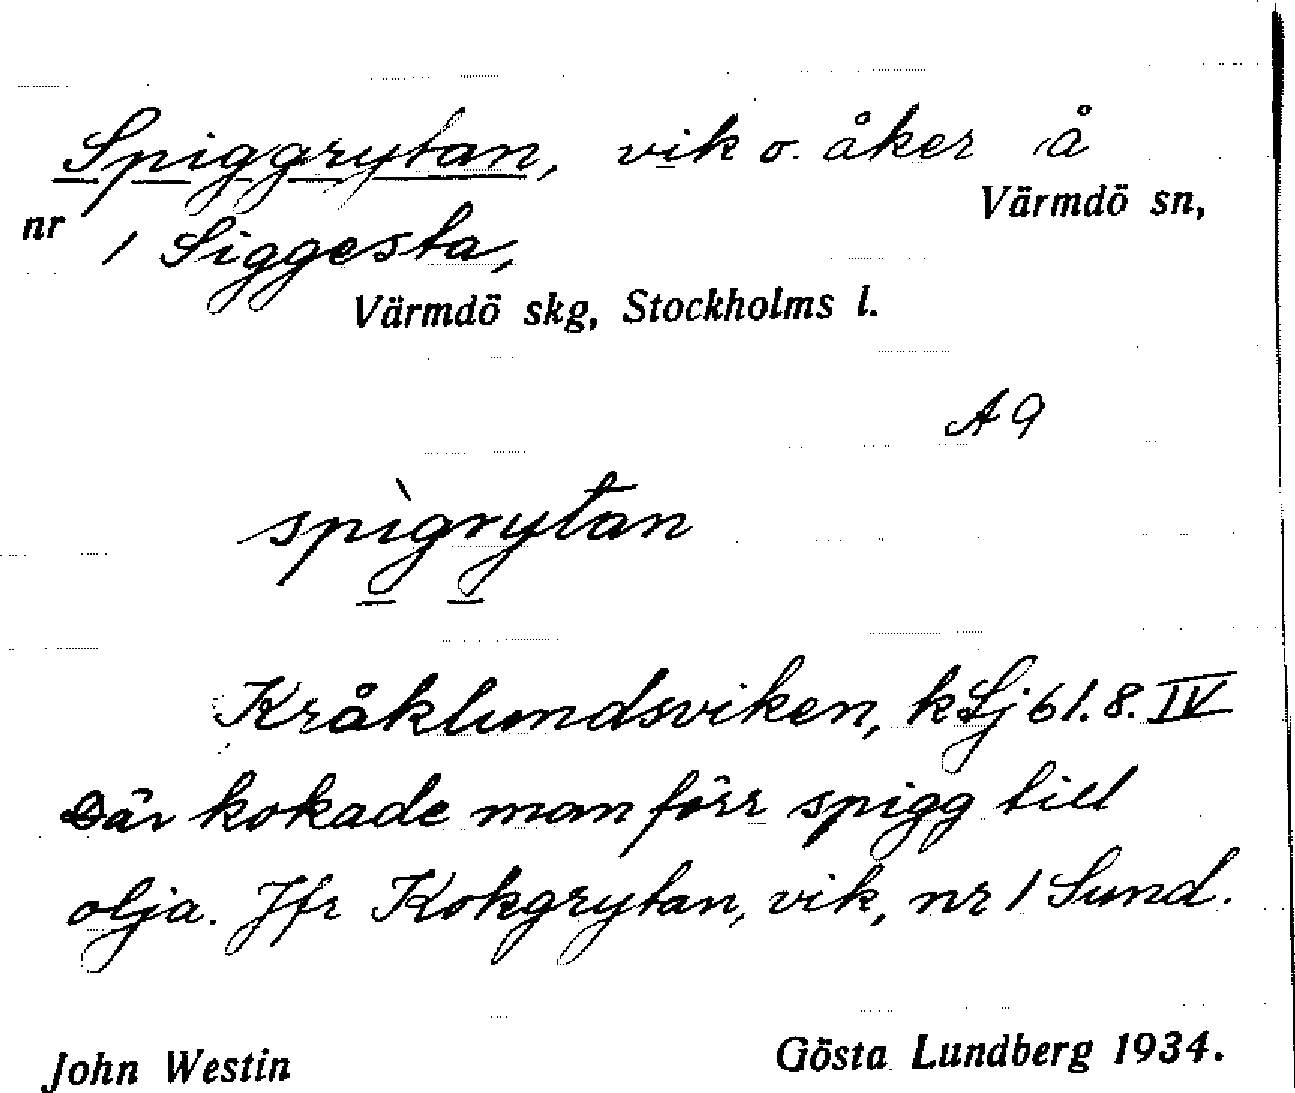 Spiggrytan, vik o. åker å
Värmdö sn,
nr 1 Siggesta,
Värmdö skg, Stockholms l.
A 9
spìgrytan
Kråklundsviken, k Lj 61.8. IV
Där kokade man förr spigg till
olja. Jfr Kokgrytan, vik, nr 1 Sund.
John Westin
Gösta Lundberg 1934.